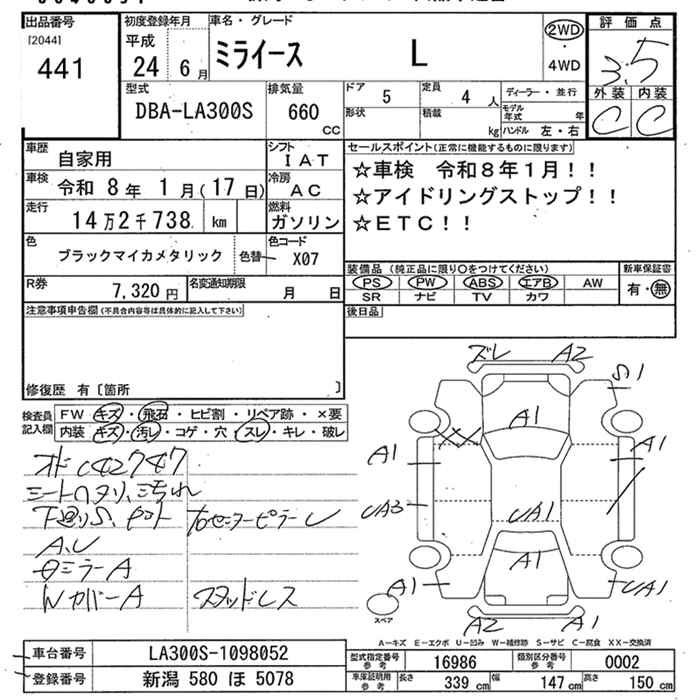 出品番号
[2044]
441
初度登録年月
平成
24年6月
車名・グレード
ミライース L
2WD
・
4WD
評価点
3.5
外装 内装
C C
型式
DBA-LA300S
排気量
660
CC
ドア 5
形状
定員 4人
積載 kg
ディーラー・並行
モデル年式 年
ハンドル 左・右
車歴 自家用
車検 令和8年1月(17日)
走行 14万2千738 km
シフト IAT
冷房 AC
燃料 ガソリン
セールスポイント(正常に機能するものに限ります)
☆車検 令和8年1月!!
☆アイドリングストップ!!
☆ETC!!
色 ブラックマイカメタリック
色替
色コード X07
R券 7,320円
名変通知期限 月 日
装備品(純正品に限り○をつけてください)
PS PW ABS エアB AW
SR ナビ TV カワ
新車保証書
有・無
注意事項申告欄(不具合内容等は具体的に記入して下さい)
後日品
修復歴 有〔箇所 〕
検査員記入欄
FW キズ・飛石・ヒビ割・リペア跡・×要
内装 キズ・汚レ・コゲ・穴・スレ・キレ・破レ
シートヘタリ、汚れ
下廻りS、
A、U
ミラーA
WカバーA
スタッドレス
ズレ A2
S1
A1
A1
A1
UA3
UA1
A1
A1
UA1
A2 A1
スペア
A―キズ E―エクボ U―凹み W―補修跡 S―サビ C―腐食 XX―交換済
車台番号 LA300S-1098052
登録番号 新潟 580 ほ 5078
型式指定番号 参考 16986
類別区分番号 参考 0002
車庫証明用 参考 長さ 339cm 幅 147cm 高さ 150cm